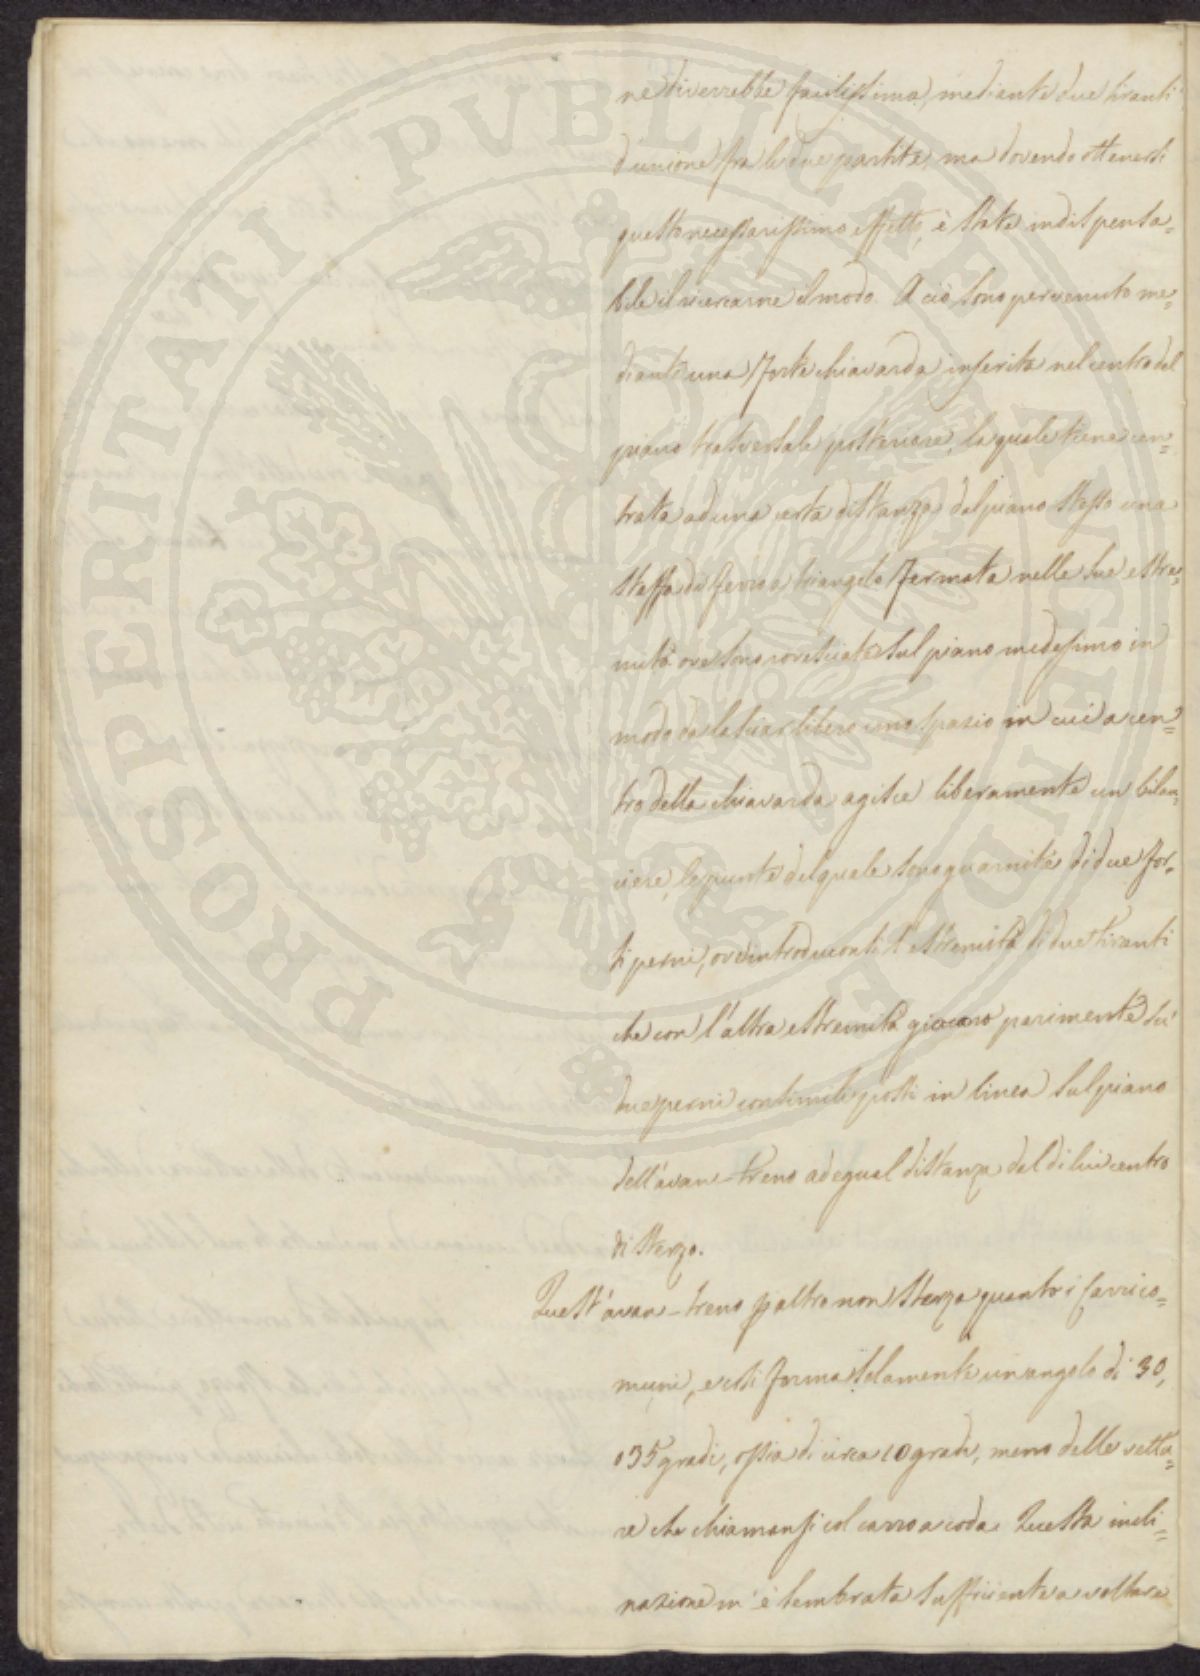 ne diverrebbe facilissima, mediante due tiranti
d'unione fra le due partite, ma dovendo ottenersi
questo necessarissimo effetto, è stato indispensa=
bile il ricercarne il modo. A ciò sono pervenuto me=
diante una forte chiavarda inserita nel centro del
piano trasversale posteriore, la quale tiene cen=
trata ad una certa distanza del piano stesso una
staffa di ferro a triangolo fermata nelle sue estre=
mità ove sono rovesciate sul piano medesimo in
modo da lasciar libero uno spazio in cui a cen=
tro della chiavarda agisce liberamente un bilan=
ciere, le punte del quale sono guarnite di due for=
ti perni, ove introduconsi l'estremità di due tiranti
che con l'altra estremità giocano parimente su'
due perni consimili posti in linea sul piano
dell'avan-treno ad egual distanza dal di lui centro
di sterzo.
Quest'avan-treno p altro non sterza quanto i carri co=
muni, e così forma solamente un angolo di 30,
o 35 gradi, ossia di circa 10 gradi, meno delle vettu=
re che chiamansi col carro a coda. Questa incli=
nazione m'è sembrata sufficiente a voltare
PROSPERITATI PUBLICAE AUGENDAE